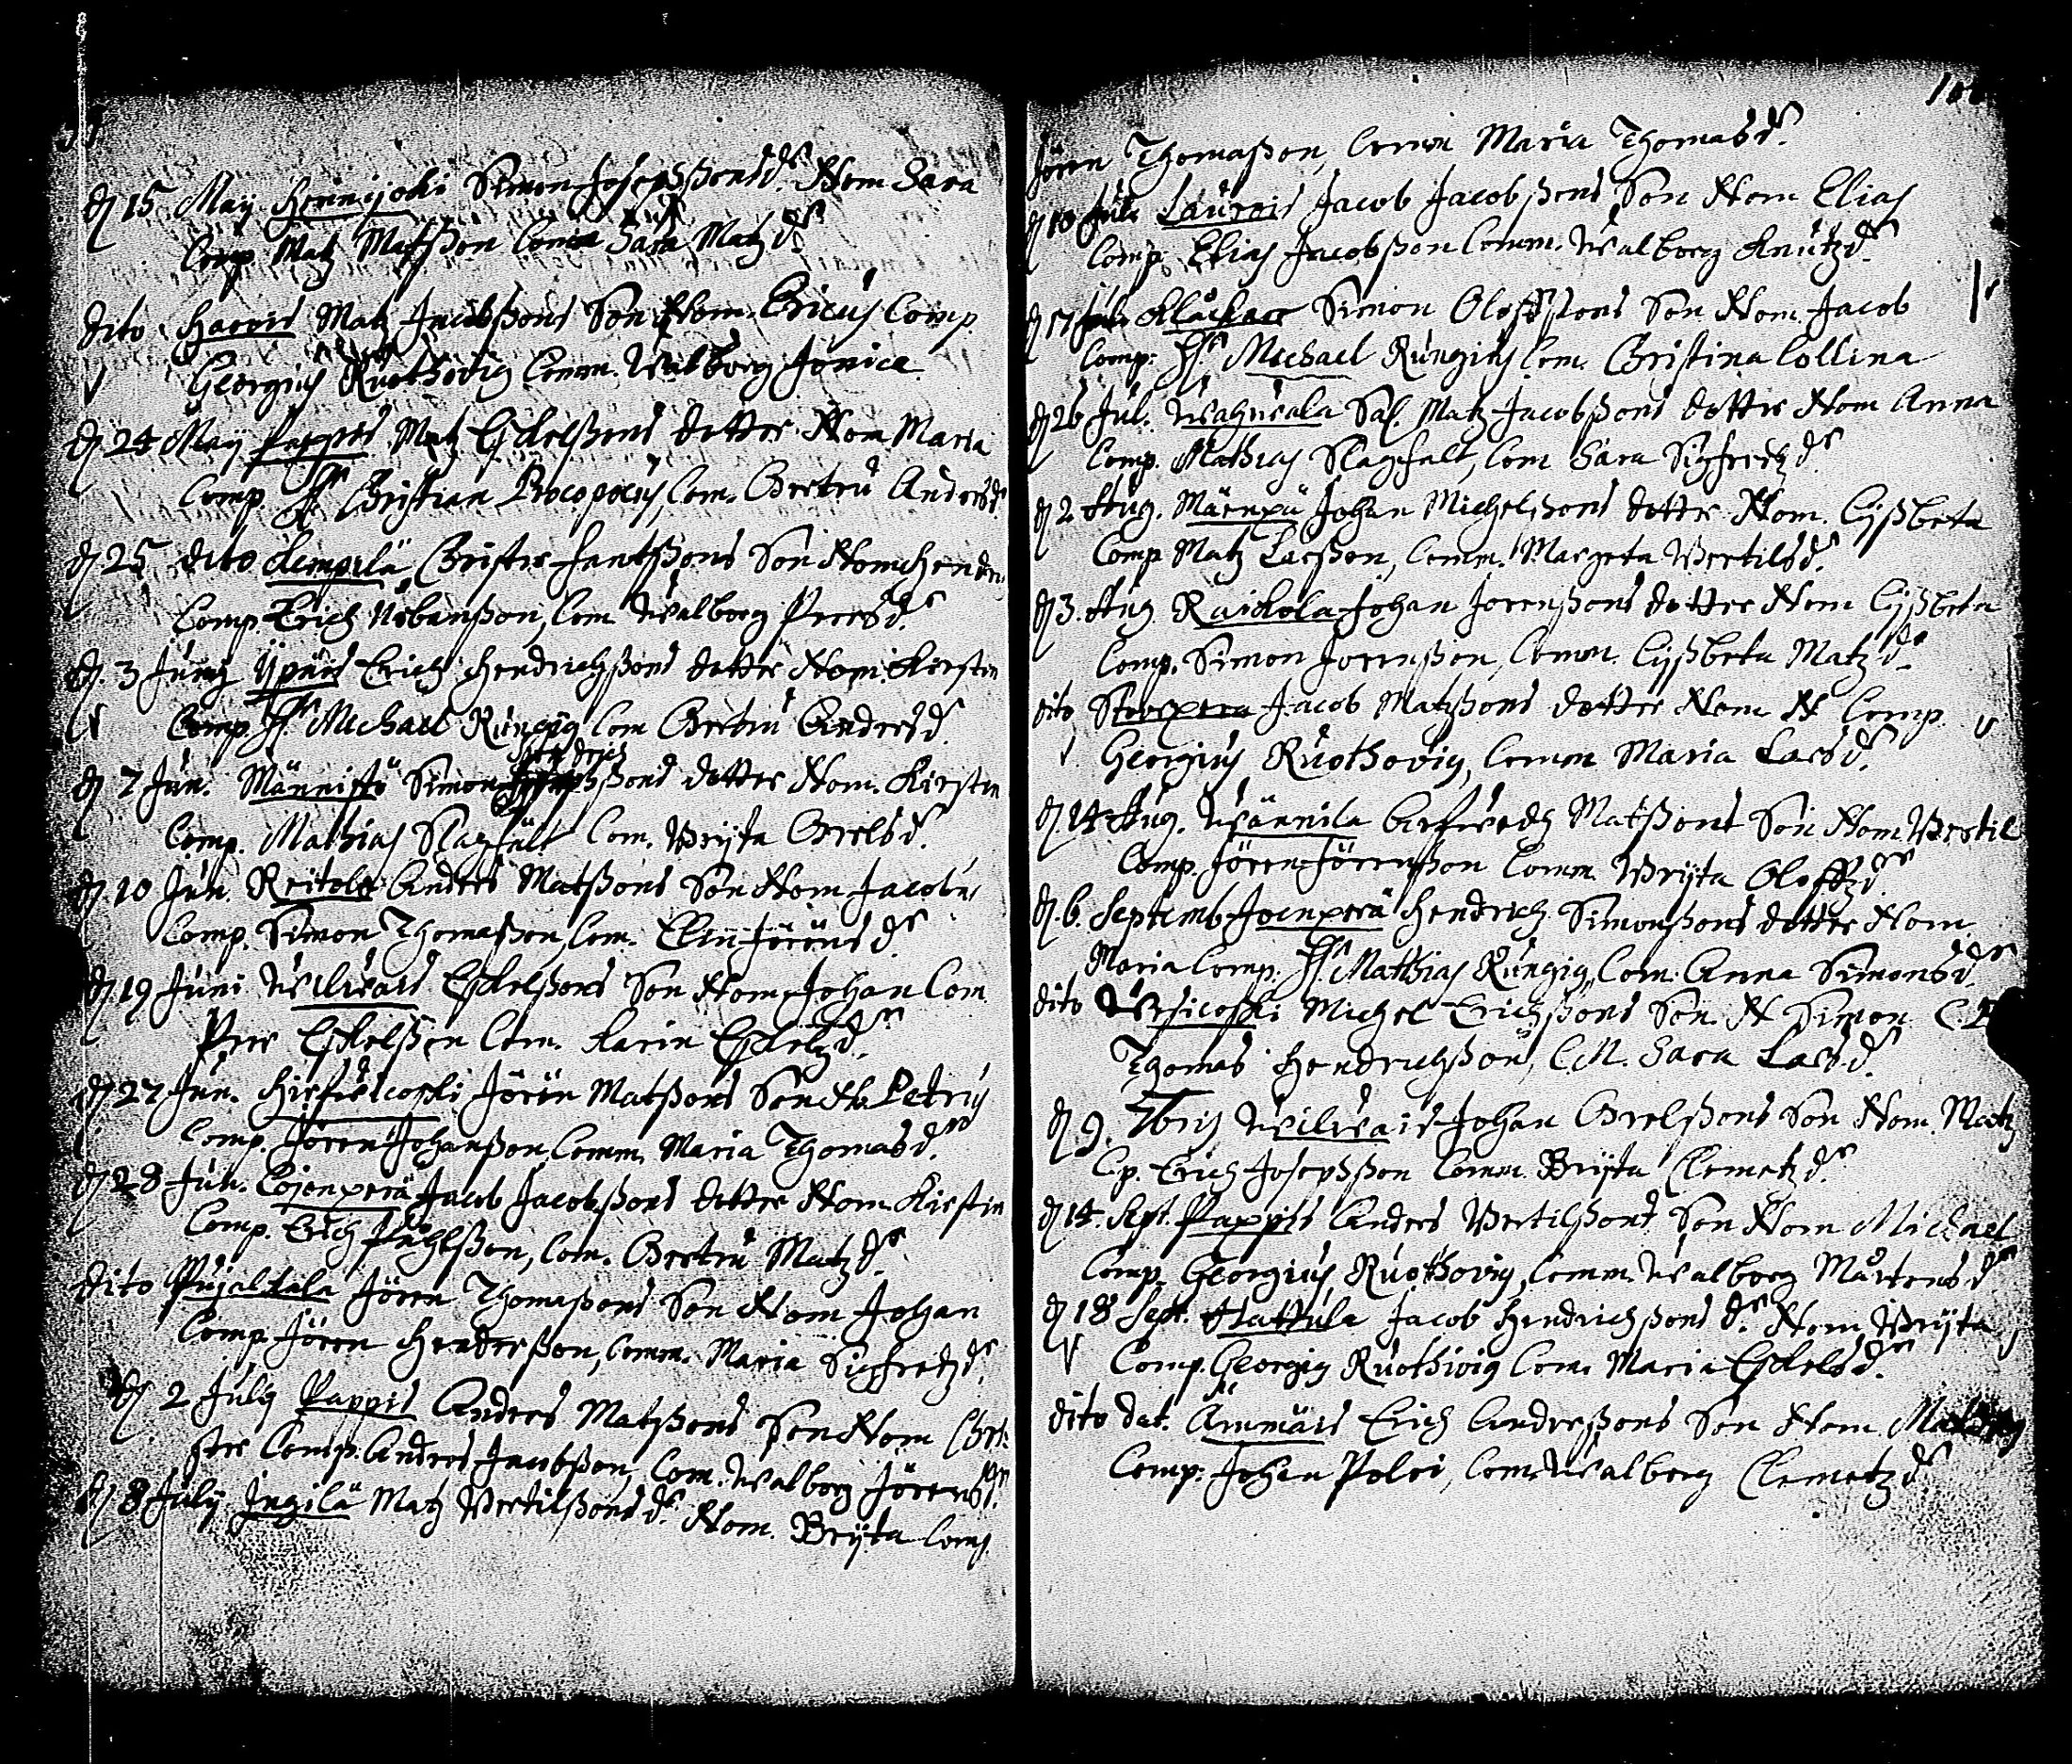 d 15 May Heinijoki Simon Josepsßons dr. Nom Sara
Comp Matz Matßon Comm Sara Matzdr
dito Harois Matz Jacobßons Son Nom. Ericus Comp.
Georgius Ruothovig Comm. Walborg Jonice
d 24 May Pappis Matz Eskelßons dotter Nom Maria
Comp. Hr Christian Procopoeus, Com. Gertru Andersdr
d 25 dito Lempilä Christer Hantßons Son Nom Hendri
Comp. Erich Urbanßon, Com Walborg Peersdr
d. 3 Junij Ypäis Erich Hendrichßons dotter Nom. Kirstin
Comp. Hr Michael Rungig Com Gertru Andersdr
Hendrich
d 7 Jun. Männistö Simon ßons dotter Nom. Kirstin
Comp. Mathias Slagfält Com. Brijta Grelsdr
d. 10 Jun. Reitola Anders Matßons Son Nom Jacobus
Comp. Simon Thomaßon, Com. Elin Jöränsdr
d. 19 Juni Wilwais Eskelßons Son Nom Johan Com.
Peer Eskelßon Com. Karin Eskelzdr
d 27 Jun. Hirfwicoski Jörän Matßons Son N. Petrus
Comp. Jören Johanßon, Comm. Maria Thomasdr
d 28 Jun. Cojenperä Jacob Jacobßons dotter Nom. Kirstin
Comp. Erich Påhlßon, Com. Gertru Matzdr
dito Pujaltala Jören Thomaßons Son Nom Johan
Comp Jören Henderßon, Comm. Maria Sigfredzdr
d. 2 July Pappis Anders Matzßons Son Nom Chri:
ster Comp. Anders Jacobßon, Com. Walborg Jörensdr
d 8 Julij Ingilä Matz Bertilßons dr Nom. Brijta Comp
Jören Thomaßon, Comm Maria Thomasdr
d 10 Juli Laurois Jacob Jacobßons Son Nom Elias
Comp Elias Jacobßon Comm. Walborg Knutzdr
d 17 Jul. Klåckare Simon Oloffßons Son Nom. Jacob
Comp: Hr Michael Rungius Com. Christina Collina
d 26 Jul. Wahwala Sal. Matz Jacobßons dotter Nom Anna
Comp. Mathias Slagfält, Com Sara Sigfredzdr
d 2 Aug. Mäenpä Johan Michelßons dotter Nom. Lijßbeta
Comp Matz Larßon, Comm. Margeta Bertilsdr
d 3. Aug. Raickola Johan Jörenßons dotter Nom Lijßbeta
Comp. Simon Jörenßon, Comm. Lijßbeta Matzdr
dito Jacob Matzßons dotter Nom N Comp.
Georgius Ruothovig, Comm Maria Larsdr
d. 14 Aug. Wännila Arfwedh Matßons Son Nom. Bertil
Comp. Jören Jörenßon Comm. Brijta Oloffzdr
d. 6. Septemb Joenperä Hendrich Simonßons dotter Nom.
Maria Comp. Hr Matthias Rungig, Com. Anna Simonsdr
dito Michel Erichßons Son. N Simon C.
Thomas Hendrichßon, C.M. Sara Larsdr
d 9. 7bris Wilwais Johan Grelßons Son Nom. Matz
Cp. Erich Josepsßon Comm. Brijta Clemetzdr
d 14. Sept. Pappis Anders Bertilßons Son Nom Michael
Comp. Georgius Ruothovig, Comm. Walborg Mårtensdr
d 18 Sept. Hattula Jacob Hendrichßons dr. Nom. Brijta
Comp. Georgig Ruothovig Com. Maria Eskelsdr
dito dat. Ammäis Erich Anderßons Son Nom.
Comp. Johan Poloi, Com. Walborg Clemetzdr